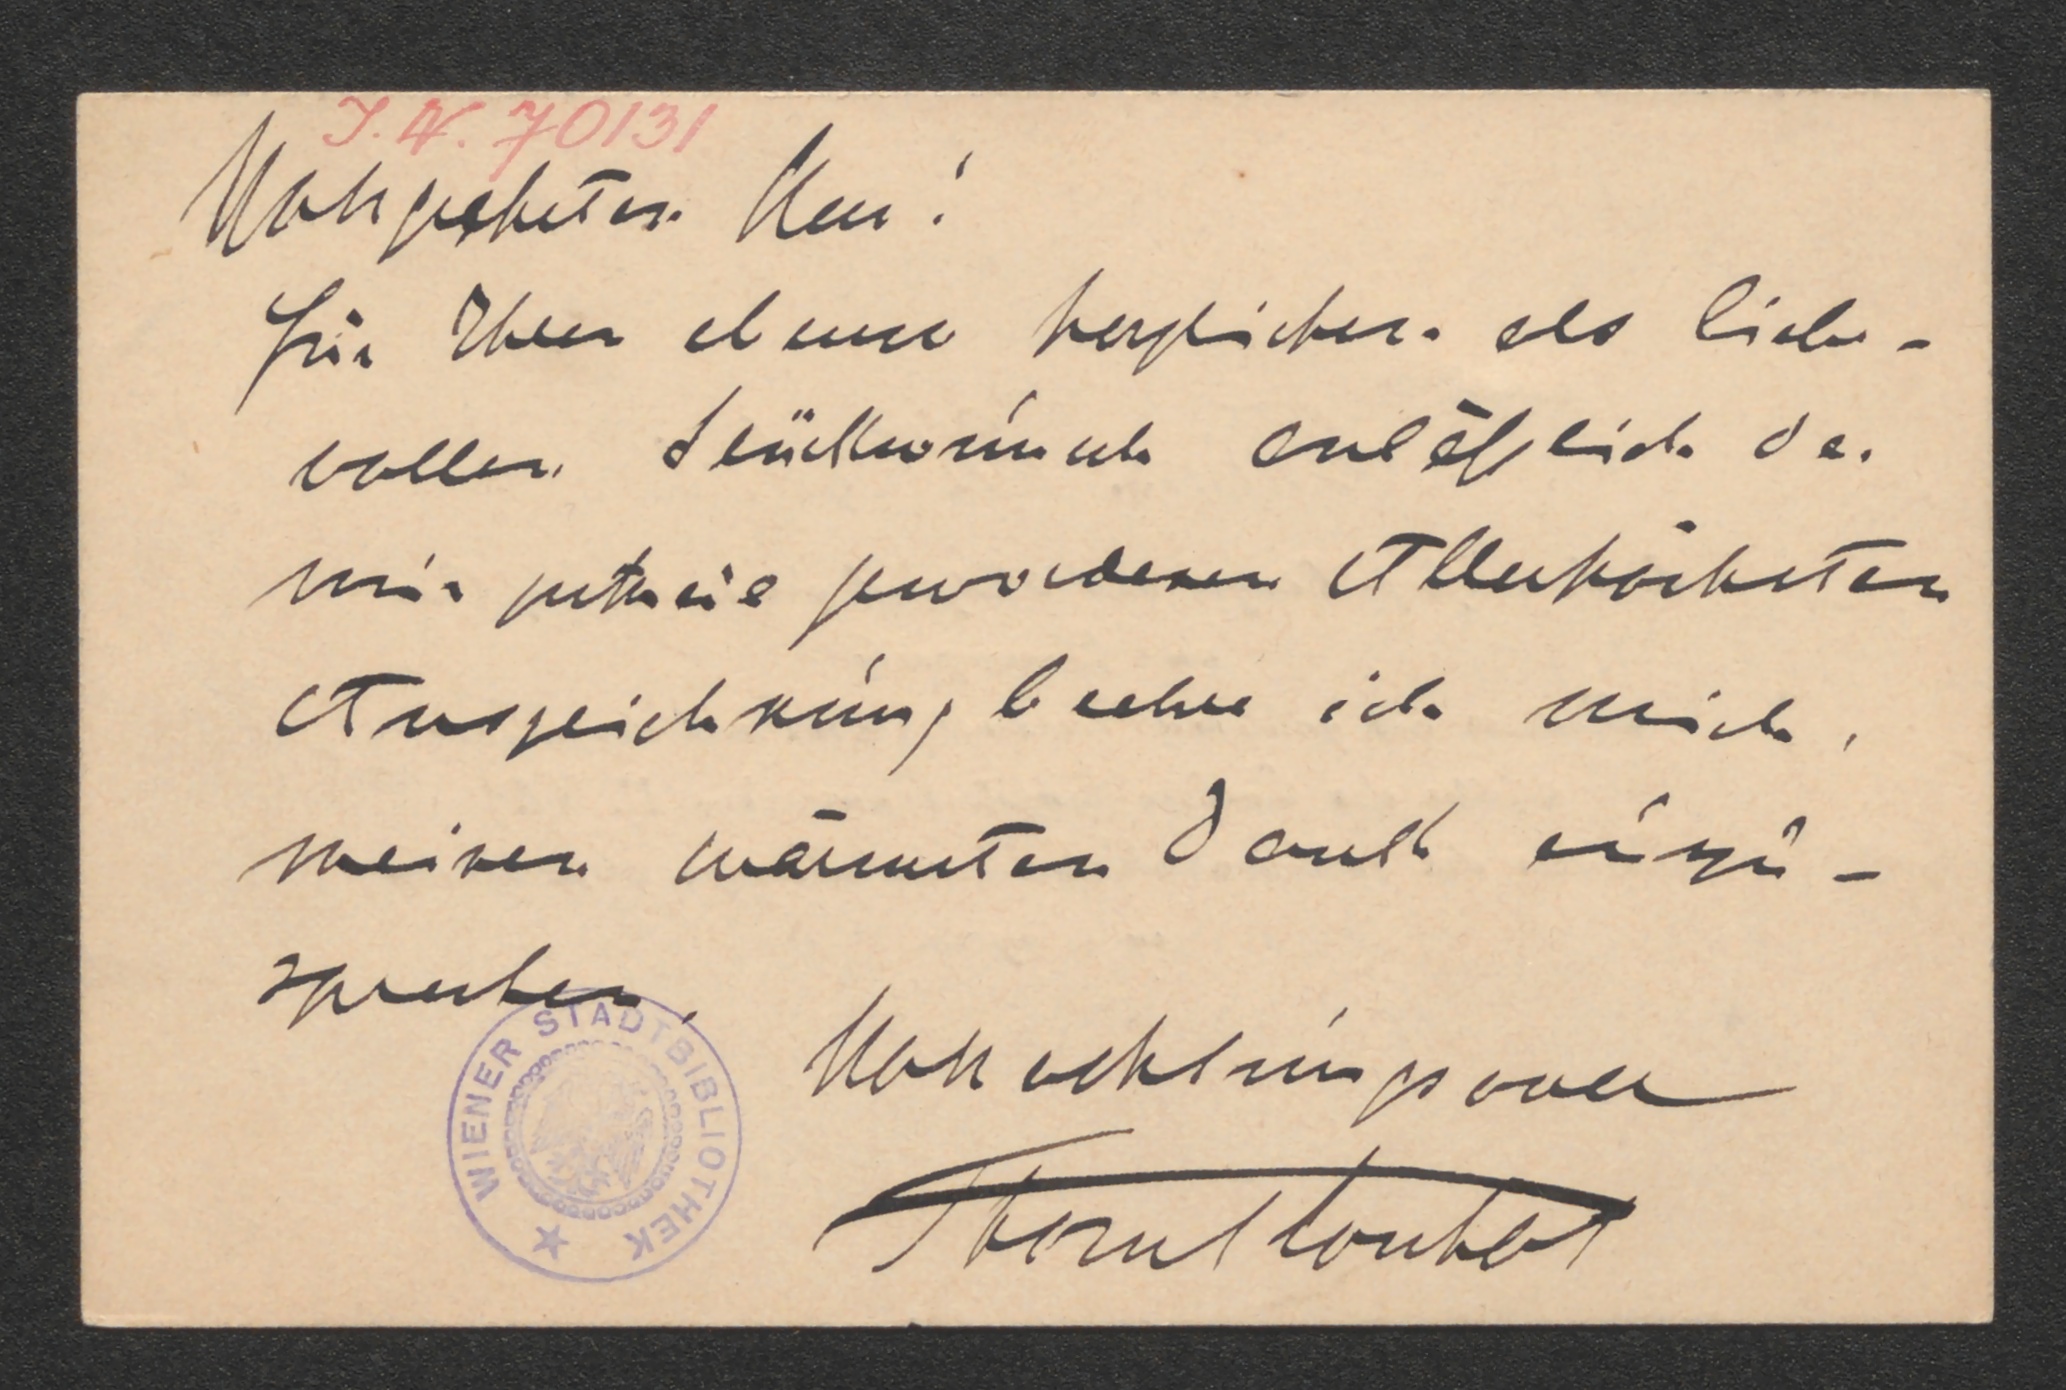 J. N. 70131
Hochgeehrter Herr!
Für Ihren ebenso herzlichen als liebe-
vollen Glückwunsch anläßlich der
mir zutheil gewordenen Allerhöchsten
Auszeichnung beehre ich mich,
meinen wärmsten Dank auszu-
sprechen.
Hochachtungsvoll
WIENER STADTBIBLIOTHEK